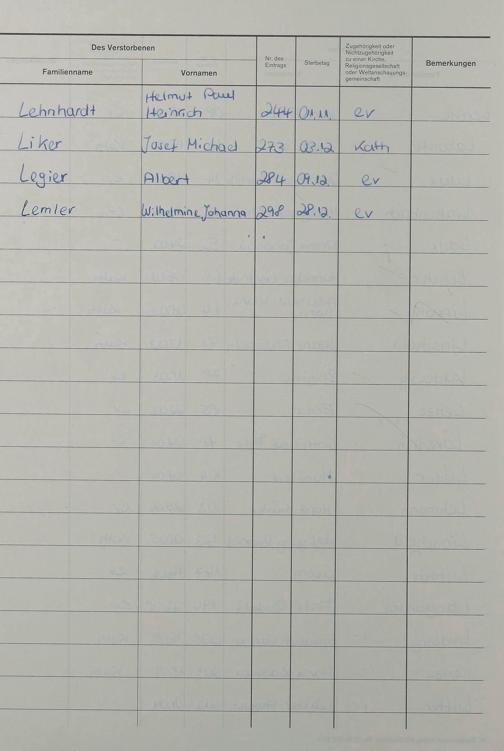 Des Verstorbenen
Familienname
Vornamen
Nr. des
Eintrags
Sterbetag
Zugehörigkeit oder
Nichtzugehörigkeit
zu einer Kirche,
Religionsgesellschaft
oder Weltanschauungs-
gemeinschaft
Bemerkungen
Helmut Paul
Lehnhardt Heinrich 244 01.11. ev
Liker Josef Michael 273 03.12. Kath
Legier Albert 284 09.12. ev
Lemler Wilhelmine Johanna 298 28.12. ev